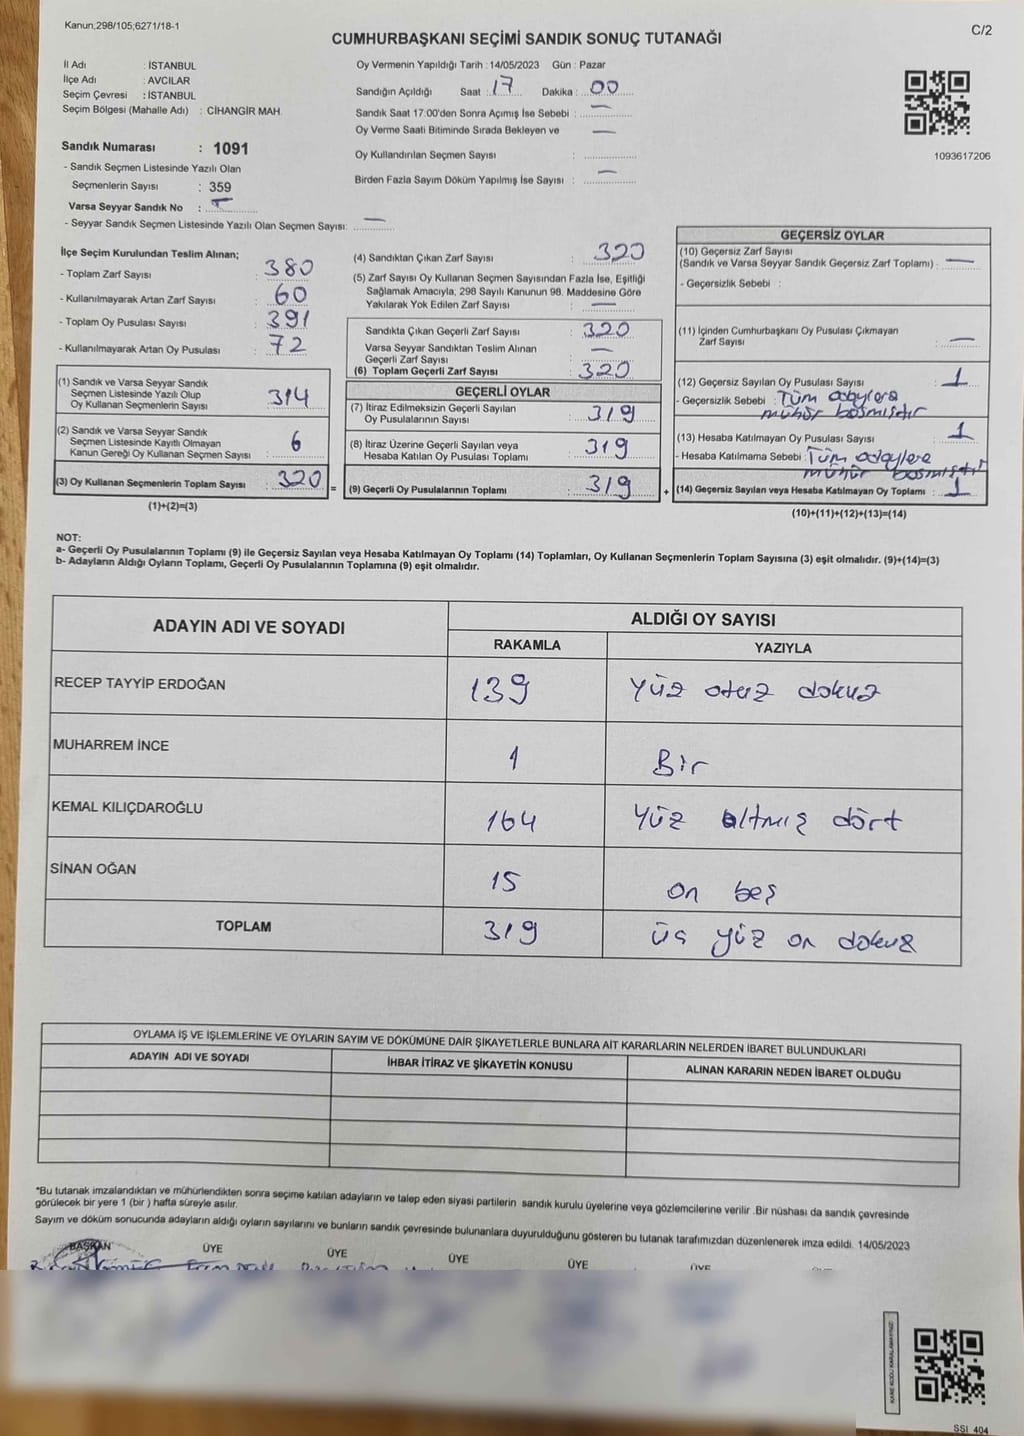 Kanun;298/105;6271/18-1
C/2
CUMHURBAŞKANI SEÇİMİ SANDIK SONUÇ TUTANAĞI
İl Adı : İSTANBUL
İlçe Adı : AVCILAR
Seçim Çevresi : İSTANBUL
Seçim Bölgesi (Mahalle Adı) : CİHANGİR MAH.
Sandık Numarası : 1091
- Sandık Seçmen Listesinde Yazılı Olan
Seçmenlerin Sayısı : 359
Varsa Seyyar Sandık No :
- Seyyar Sandık Seçmen Listesinde Yazılı Olan Seçmen Sayısı: —
Oy Vermenin Yapıldığı Tarih : 14/05/2023 Gün : Pazar
Sandığın Açıldığı Saat : 17 Dakika : 00
Sandık Saat 17:00'den Sonra Açımış İse Sebebi : —
Oy Verme Saati Bitiminde Sırada Bekleyen ve —
Oy Kullandırılan Seçmen Sayısı :
Birden Fazla Sayım Döküm Yapılmış İse Sayısı : —
1093617206
İlçe Seçim Kurulundan Teslim Alınan;
- Toplam Zarf Sayısı : 380
- Kullanılmayarak Artan Zarf Sayısı : 60
- Toplam Oy Pusulası Sayısı : 391
- Kullanılmayarak Artan Oy Pusulası : 72
(1) Sandık ve Varsa Seyyar Sandık
Seçmen Listesinde Yazılı Olup
Oy Kullanan Seçmenlerin Sayısı : 314
(2) Sandık ve Varsa Seyyar Sandık
Seçmen Listesinde Kayıtlı Olmayan
Kanun Gereği Oy Kullanan Seçmen Sayısı : 6
(3) Oy Kullanan Seçmenlerin Toplam Sayısı : 320 =
(1)+(2)=(3)
(4) Sandıktan Çıkan Zarf Sayısı : 320
(5) Zarf Sayısı Oy Kullanan Seçmen Sayısından Fazla İse, Eşitliği
Sağlamak Amacıyla, 298 Sayılı Kanunun 98. Maddesine Göre
Yakılarak Yok Edilen Zarf Sayısı : —
Sandıkta Çıkan Geçerli Zarf Sayısı : 320
Varsa Seyyar Sandıktan Teslim Alınan
Geçerli Zarf Sayısı : —
(6) Toplam Geçerli Zarf Sayısı : 320
GEÇERLİ OYLAR
(7) İtiraz Edilmeksizin Geçerli Sayılan
Oy Pusulalarının Sayısı : 319
(8) İtiraz Üzerine Geçerli Sayılan veya
Hesaba Katılan Oy Pusulası Toplamı : 319
(9) Geçerli Oy Pusulalarının Toplamı : 319 +
GEÇERSİZ OYLAR
(10) Geçersiz Zarf Sayısı
(Sandık ve Varsa Seyyar Sandık Geçersiz Zarf Toplamı) : —
- Geçersizlik Sebebi :
(11) İçinden Cumhurbaşkanı Oy Pusulası Çıkmayan
Zarf Sayısı : —
(12) Geçersiz Sayılan Oy Pusulası Sayısı : 1
- Geçersizlik Sebebi : Tüm adaylara
mühür basmıştır
(13) Hesaba Katılmayan Oy Pusulası Sayısı : 1
- Hesaba Katılmama Sebebi : Tüm adaylere
mühür basmıştır
(14) Geçersiz Sayılan veya Hesaba Katılmayan Oy Toplamı : 1
(10)+(11)+(12)+(13)=(14)
NOT:
a- Geçerli Oy Pusulalarının Toplamı (9) ile Geçersiz Sayılan veya Hesaba Katılmayan Oy Toplamı (14) Toplamları, Oy Kullanan Seçmenlerin Toplam Sayısına (3) eşit olmalıdır. (9)+(14)=(3)
b- Adayların Aldığı Oyların Toplamı, Geçerli Oy Pusulalarının Toplamına (9) eşit olmalıdır.
ADAYIN ADI VE SOYADI ALDIĞI OY SAYISI
RAKAMLA YAZIYLA
RECEP TAYYİP ERDOĞAN 139 Yüz otuz dokuz
MUHARREM İNCE 1 Bir
KEMAL KILIÇDAROĞLU 164 Yüz altmış dört
SİNAN OĞAN 15 on beş
TOPLAM 319 üç yüz on dokuz
OYLAMA İŞ VE İŞLEMLERİNE VE OYLARIN SAYIM VE DÖKÜMÜNE DAİR ŞİKAYETLERLE BUNLARA AİT KARARLARIN NELERDEN İBARET BULUNDUKLARI
ADAYIN ADI VE SOYADI İHBAR İTİRAZ VE ŞİKAYETİN KONUSU ALINAN KARARIN NEDEN İBARET OLDUĞU
*Bu tutanak imzalandıktan ve mühürlendikten sonra seçime katılan adayların ve talep eden siyasi partilerin sandık kurulu üyelerine veya gözlemcilerine verilir .Bir nüshası da sandık çevresinde
görülecek bir yere 1 (bir ) hafta süreyle asılır.
Sayım ve döküm sonucunda adayların aldığı oyların sayılarını ve bunların sandık çevresinde bulunanlara duyurulduğunu gösteren bu tutanak tarafımızdan düzenlenerek imza edildi. 14/05/2023
BAŞKAN ÜYE ÜYE ÜYE ÜYE ÜYE
KARE KODU KARALAMAYINIZ!
SSI 404